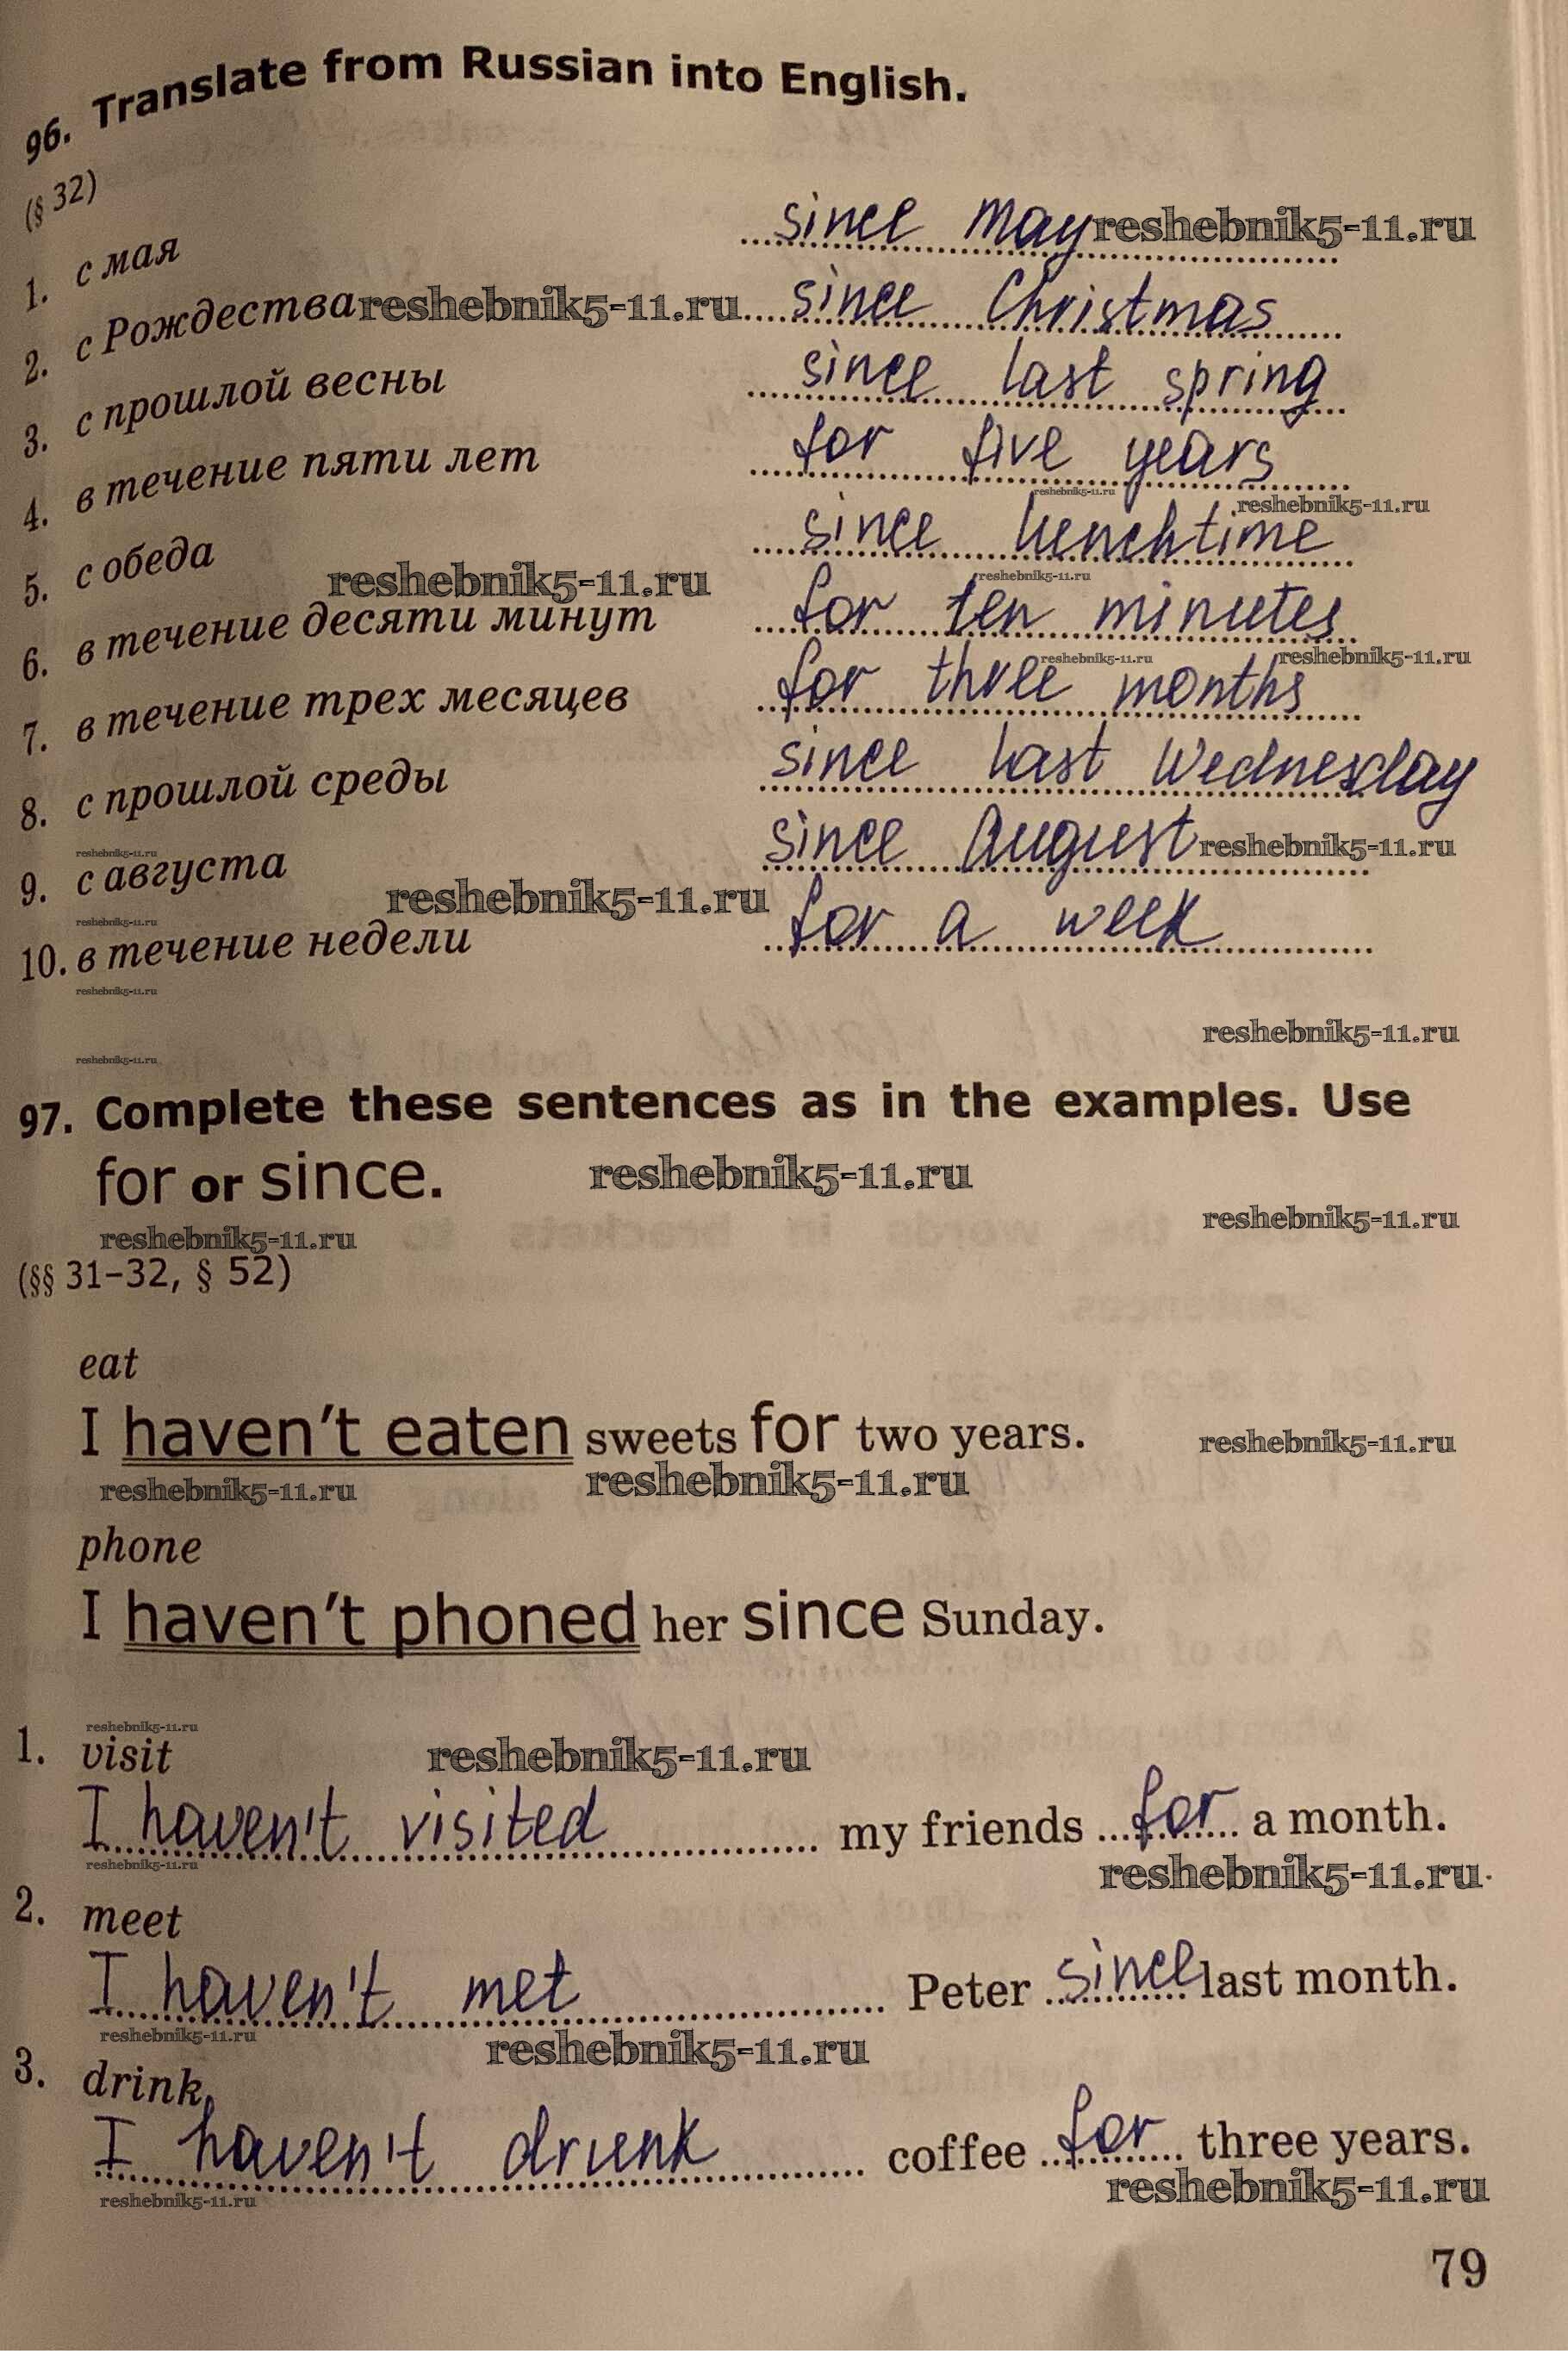 96. Translate from Russian into English.
(§ 32)
1. с мая since May reshebnik5-11.ru
2. с Рождества reshebnik5-11.ru since Christmas
3. с прошлой весны since last spring
4. в течение пяти лет for five years
reshebnik5-11.ru reshebnik5-11.ru
5. с обеда since lunchtime
reshebnik5-11.ru reshebnik5-11.ru
6. в течение десяти минут for ten minutes
reshebnik5-11.ru reshebnik5-11.ru
7. в течение трех месяцев for three months
8. с прошлой среды since last Wednesday
reshebnik5-11.ru
9. с августа since August reshebnik5-11.ru
reshebnik5-11.ru
reshebnik5-11.ru
10. в течение недели for a week
reshebnik5-11.ru
reshebnik5-11.ru
reshebnik5-11.ru
97. Complete these sentences as in the examples. Use
for or since. reshebnik5-11.ru
reshebnik5-11.ru
reshebnik5-11.ru
(§§ 31–32, § 52)
eat
I haven't eaten sweets for two years. reshebnik5-11.ru
reshebnik5-11.ru reshebnik5-11.ru
phone
I haven't phoned her since Sunday.
reshebnik5-11.ru
1. visit reshebnik5-11.ru
I haven't visited my friends for a month.
reshebnik5-11.ru reshebnik5-11.ru
2. meet
I haven't met Peter since last month.
reshebnik5-11.ru reshebnik5-11.ru
3. drink
I haven't drunk coffee for three years.
reshebnik5-11.ru reshebnik5-11.ru
79